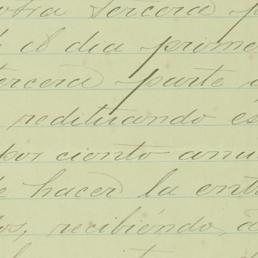 otra tercera p
é el dia prime
tercera parte
redituando és
por ciento anu
e hacer la ent
os, recibiendo, a